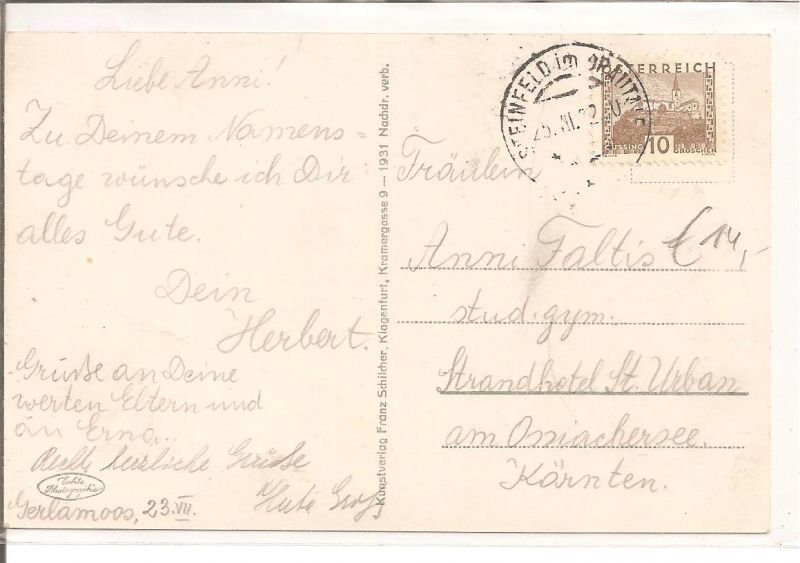 Liebe Anni!
Zu Deinem Namens=
tage wünsche ich Dir
alles Gute.
Dein
Herbert.
Grüße an Deine
werten Eltern und
an Erna..
Recht herzliche Grüße
Gerlamoos, 23.VII.
Echte
Photographie
Kunstverlag Franz Schilcher, Klagenfurt, Kramergasse 9 – 1931 Nachdr. verb.
STEINFELD im DRAUTALE
ÖSTERREICH
GÜSSING 10 GROSCHEN
Fräulein
Anni Faltis
€ 14,-
stud. gym.
Strandhotel St. Urban
am Ossiachersee.
Kärnten.